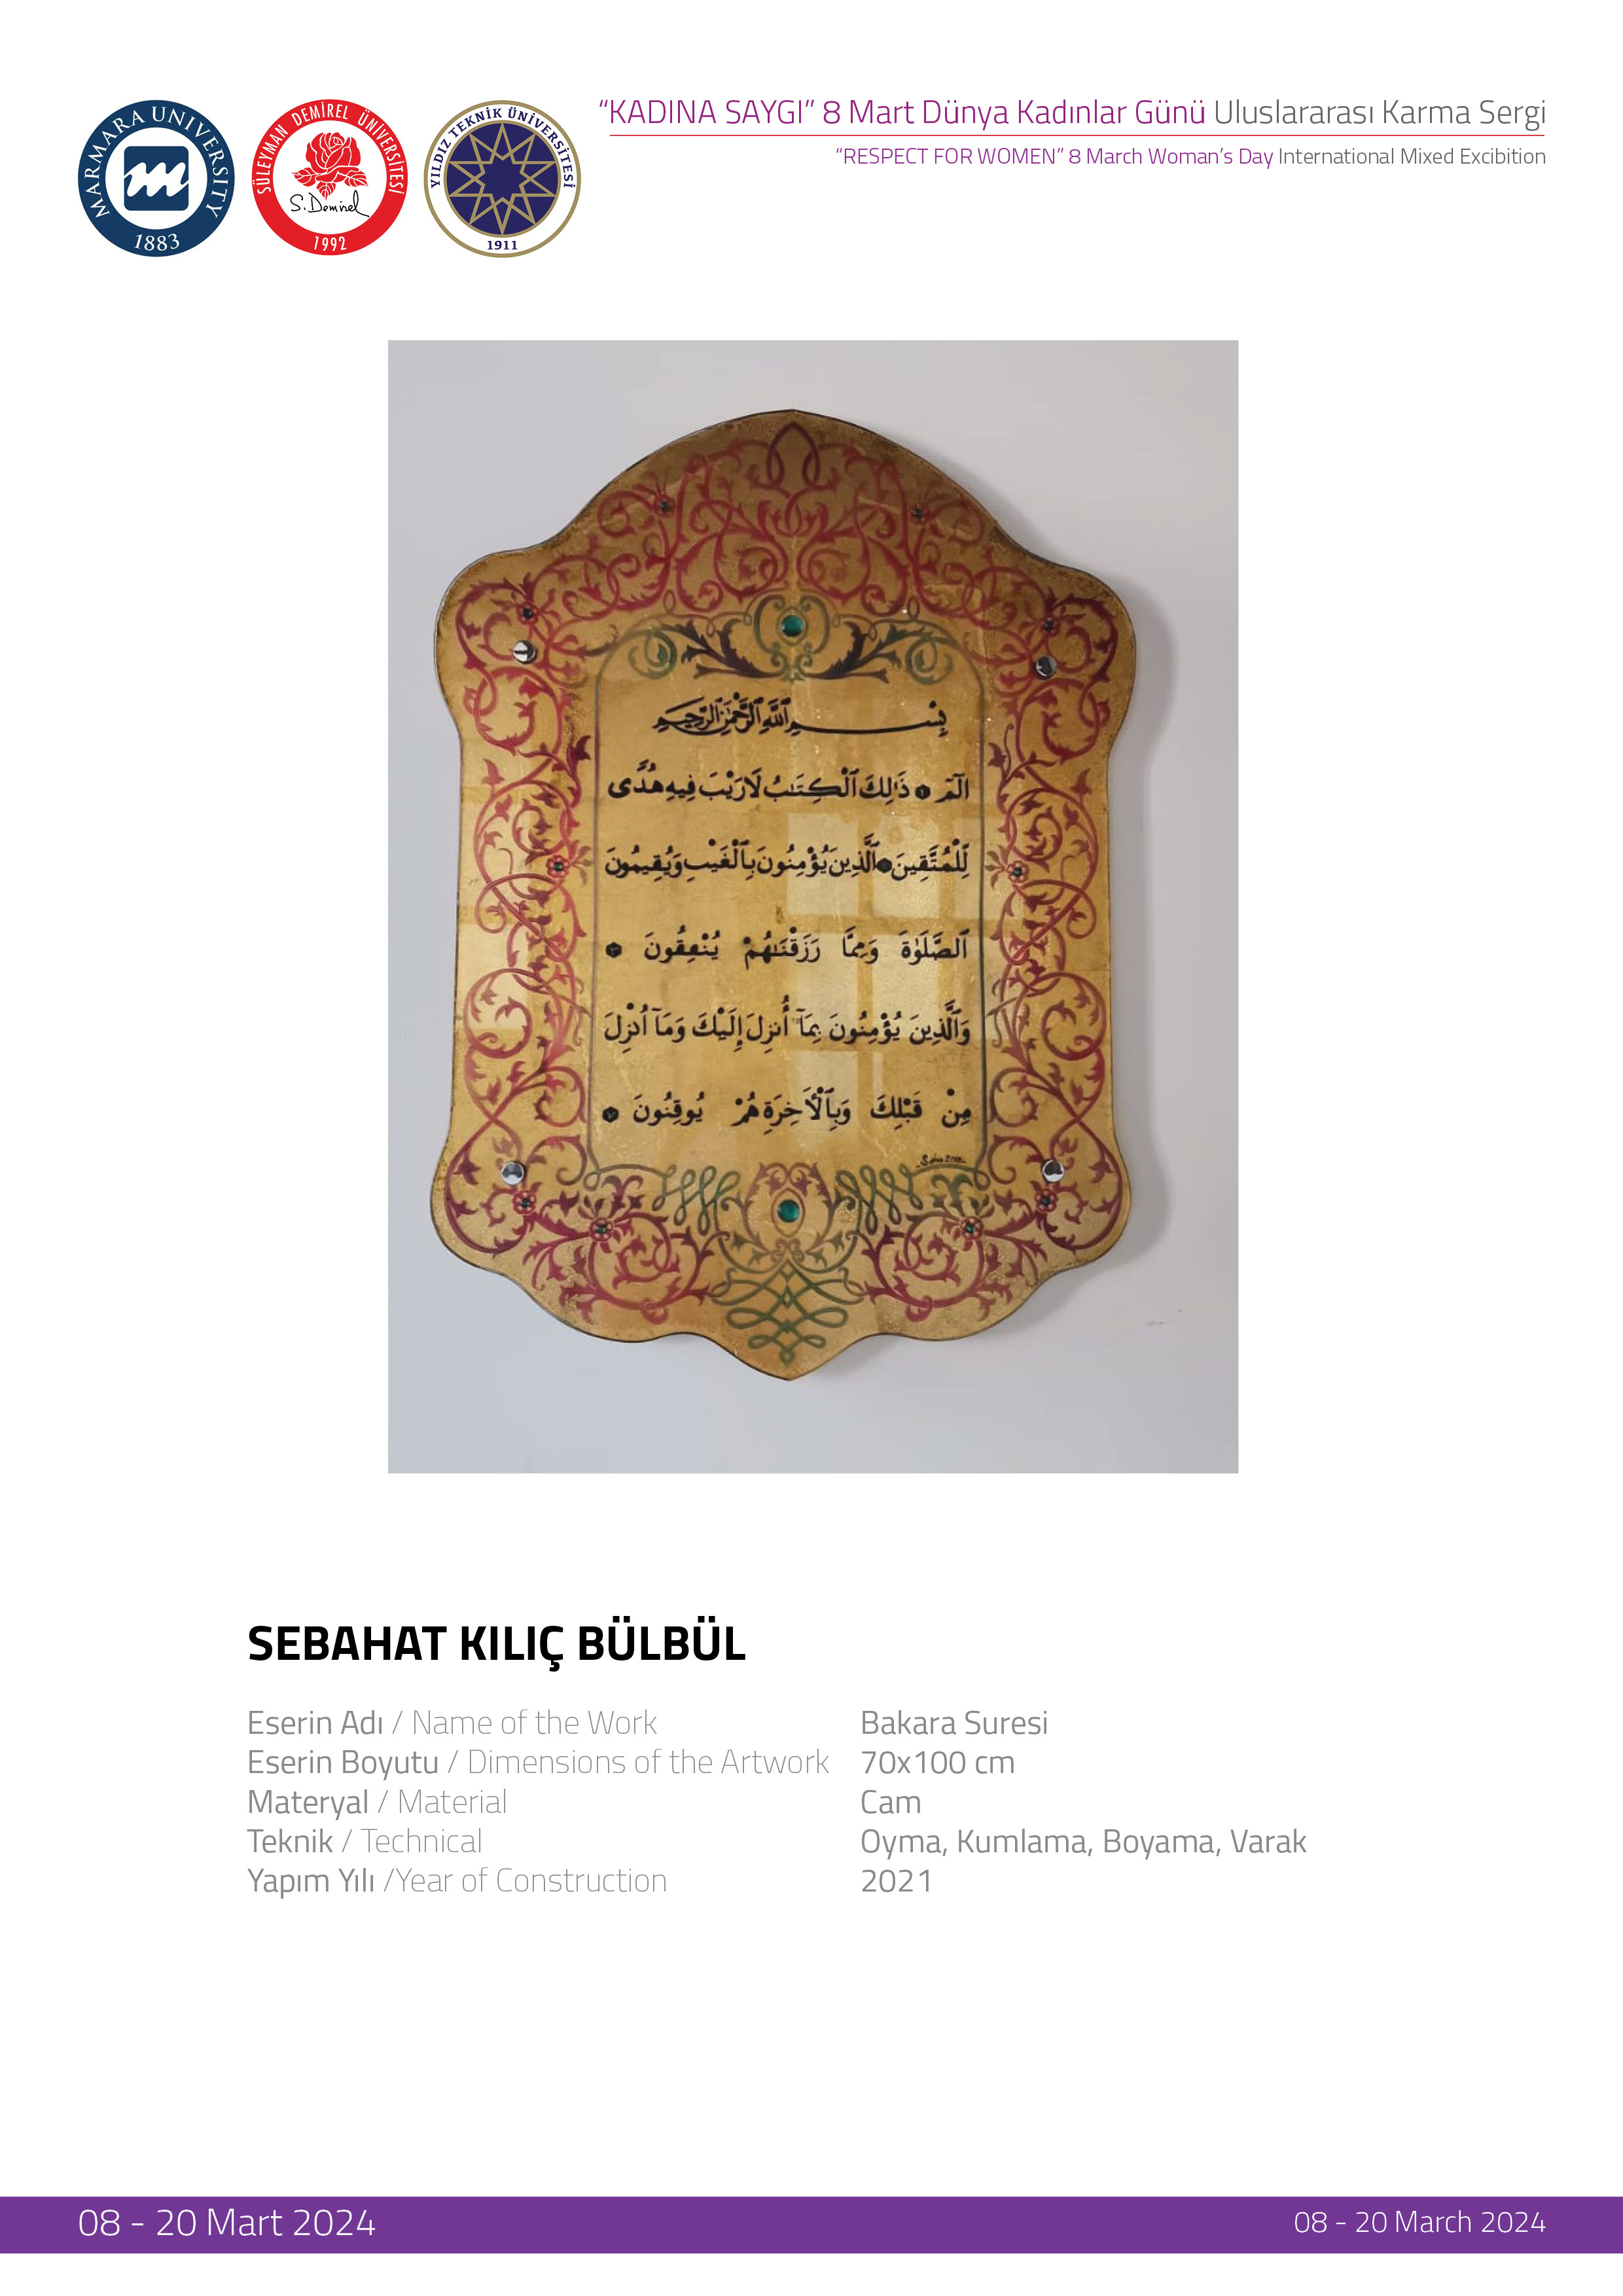 MARMARA UNIVERSITY
1883
SÜLEYMAN DEMİREL ÜNİVERSİTESİ
S. Demirel
1992
YILDIZ TEKNİK ÜNİVERSİTESİ
1911
“KADINA SAYGI” 8 Mart Dünya Kadınlar Günü Uluslararası Karma Sergi
“RESPECT FOR WOMEN” 8 March Woman’s Day International Mixed Excibition
بِسْمِ ٱللَّهِ ٱلرَّحْمَٰنِ ٱلرَّحِيمِ
الٓمٓ ذَٰلِكَ ٱلْكِتَٰبُ لَا رَيْبَ فِيهِ هُدًى
لِّلْمُتَّقِينَ ٱلَّذِينَ يُؤْمِنُونَ بِٱلْغَيْبِ وَيُقِيمُونَ
ٱلصَّلَوٰةَ وَمِمَّا رَزَقْنَٰهُمْ يُنْفِقُونَ
وَٱلَّذِينَ يُؤْمِنُونَ بِمَآ أُنزِلَ إِلَيْكَ وَمَآ أُنْزِلَ
مِنْ قَبْلِكَ وَبِٱلْأَخِرَةِ هُمْ يُوقِنُونَ
SEBAHAT KILIÇ BÜLBÜL
Eserin Adı / Name of the Work Bakara Suresi
Eserin Boyutu / Dimensions of the Artwork 70x100 cm
Materyal / Material Cam
Teknik / Technical Oyma, Kumlama, Boyama, Varak
Yapım Yılı /Year of Construction 2021
08 - 20 Mart 2024
08 - 20 March 2024